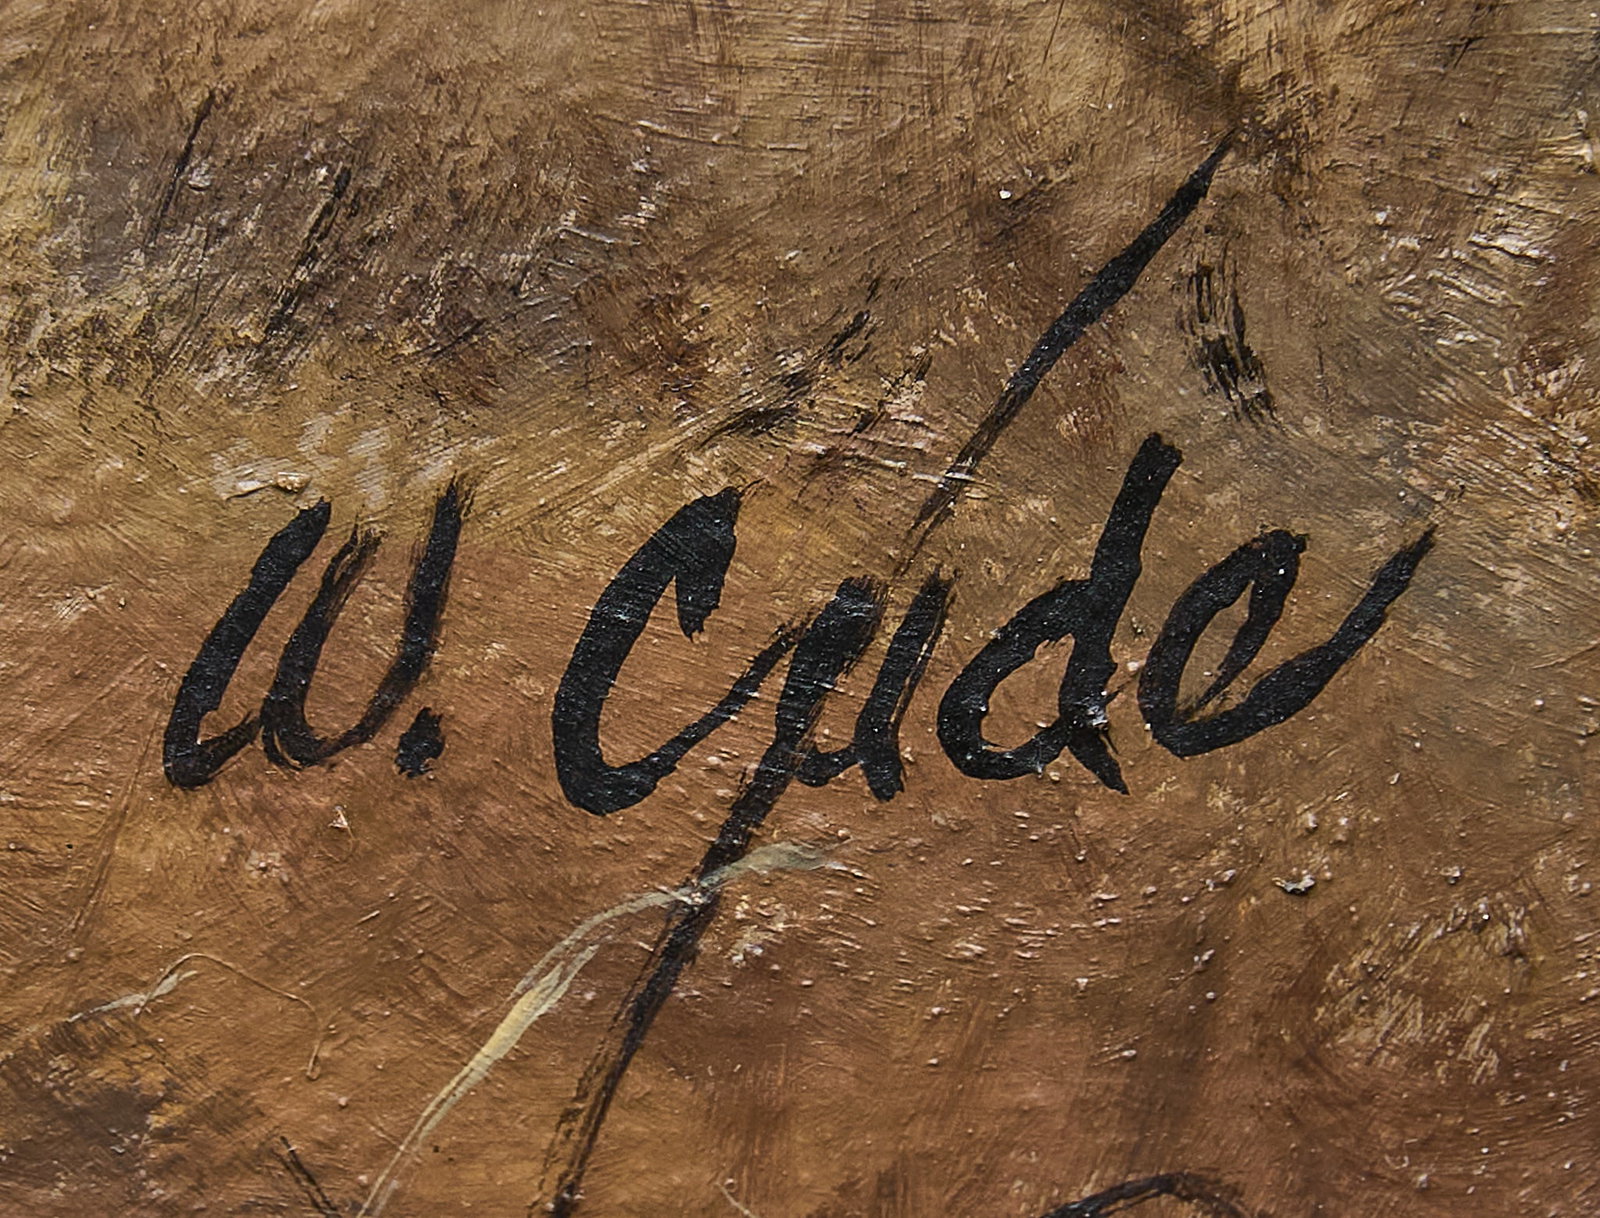 W. Gude